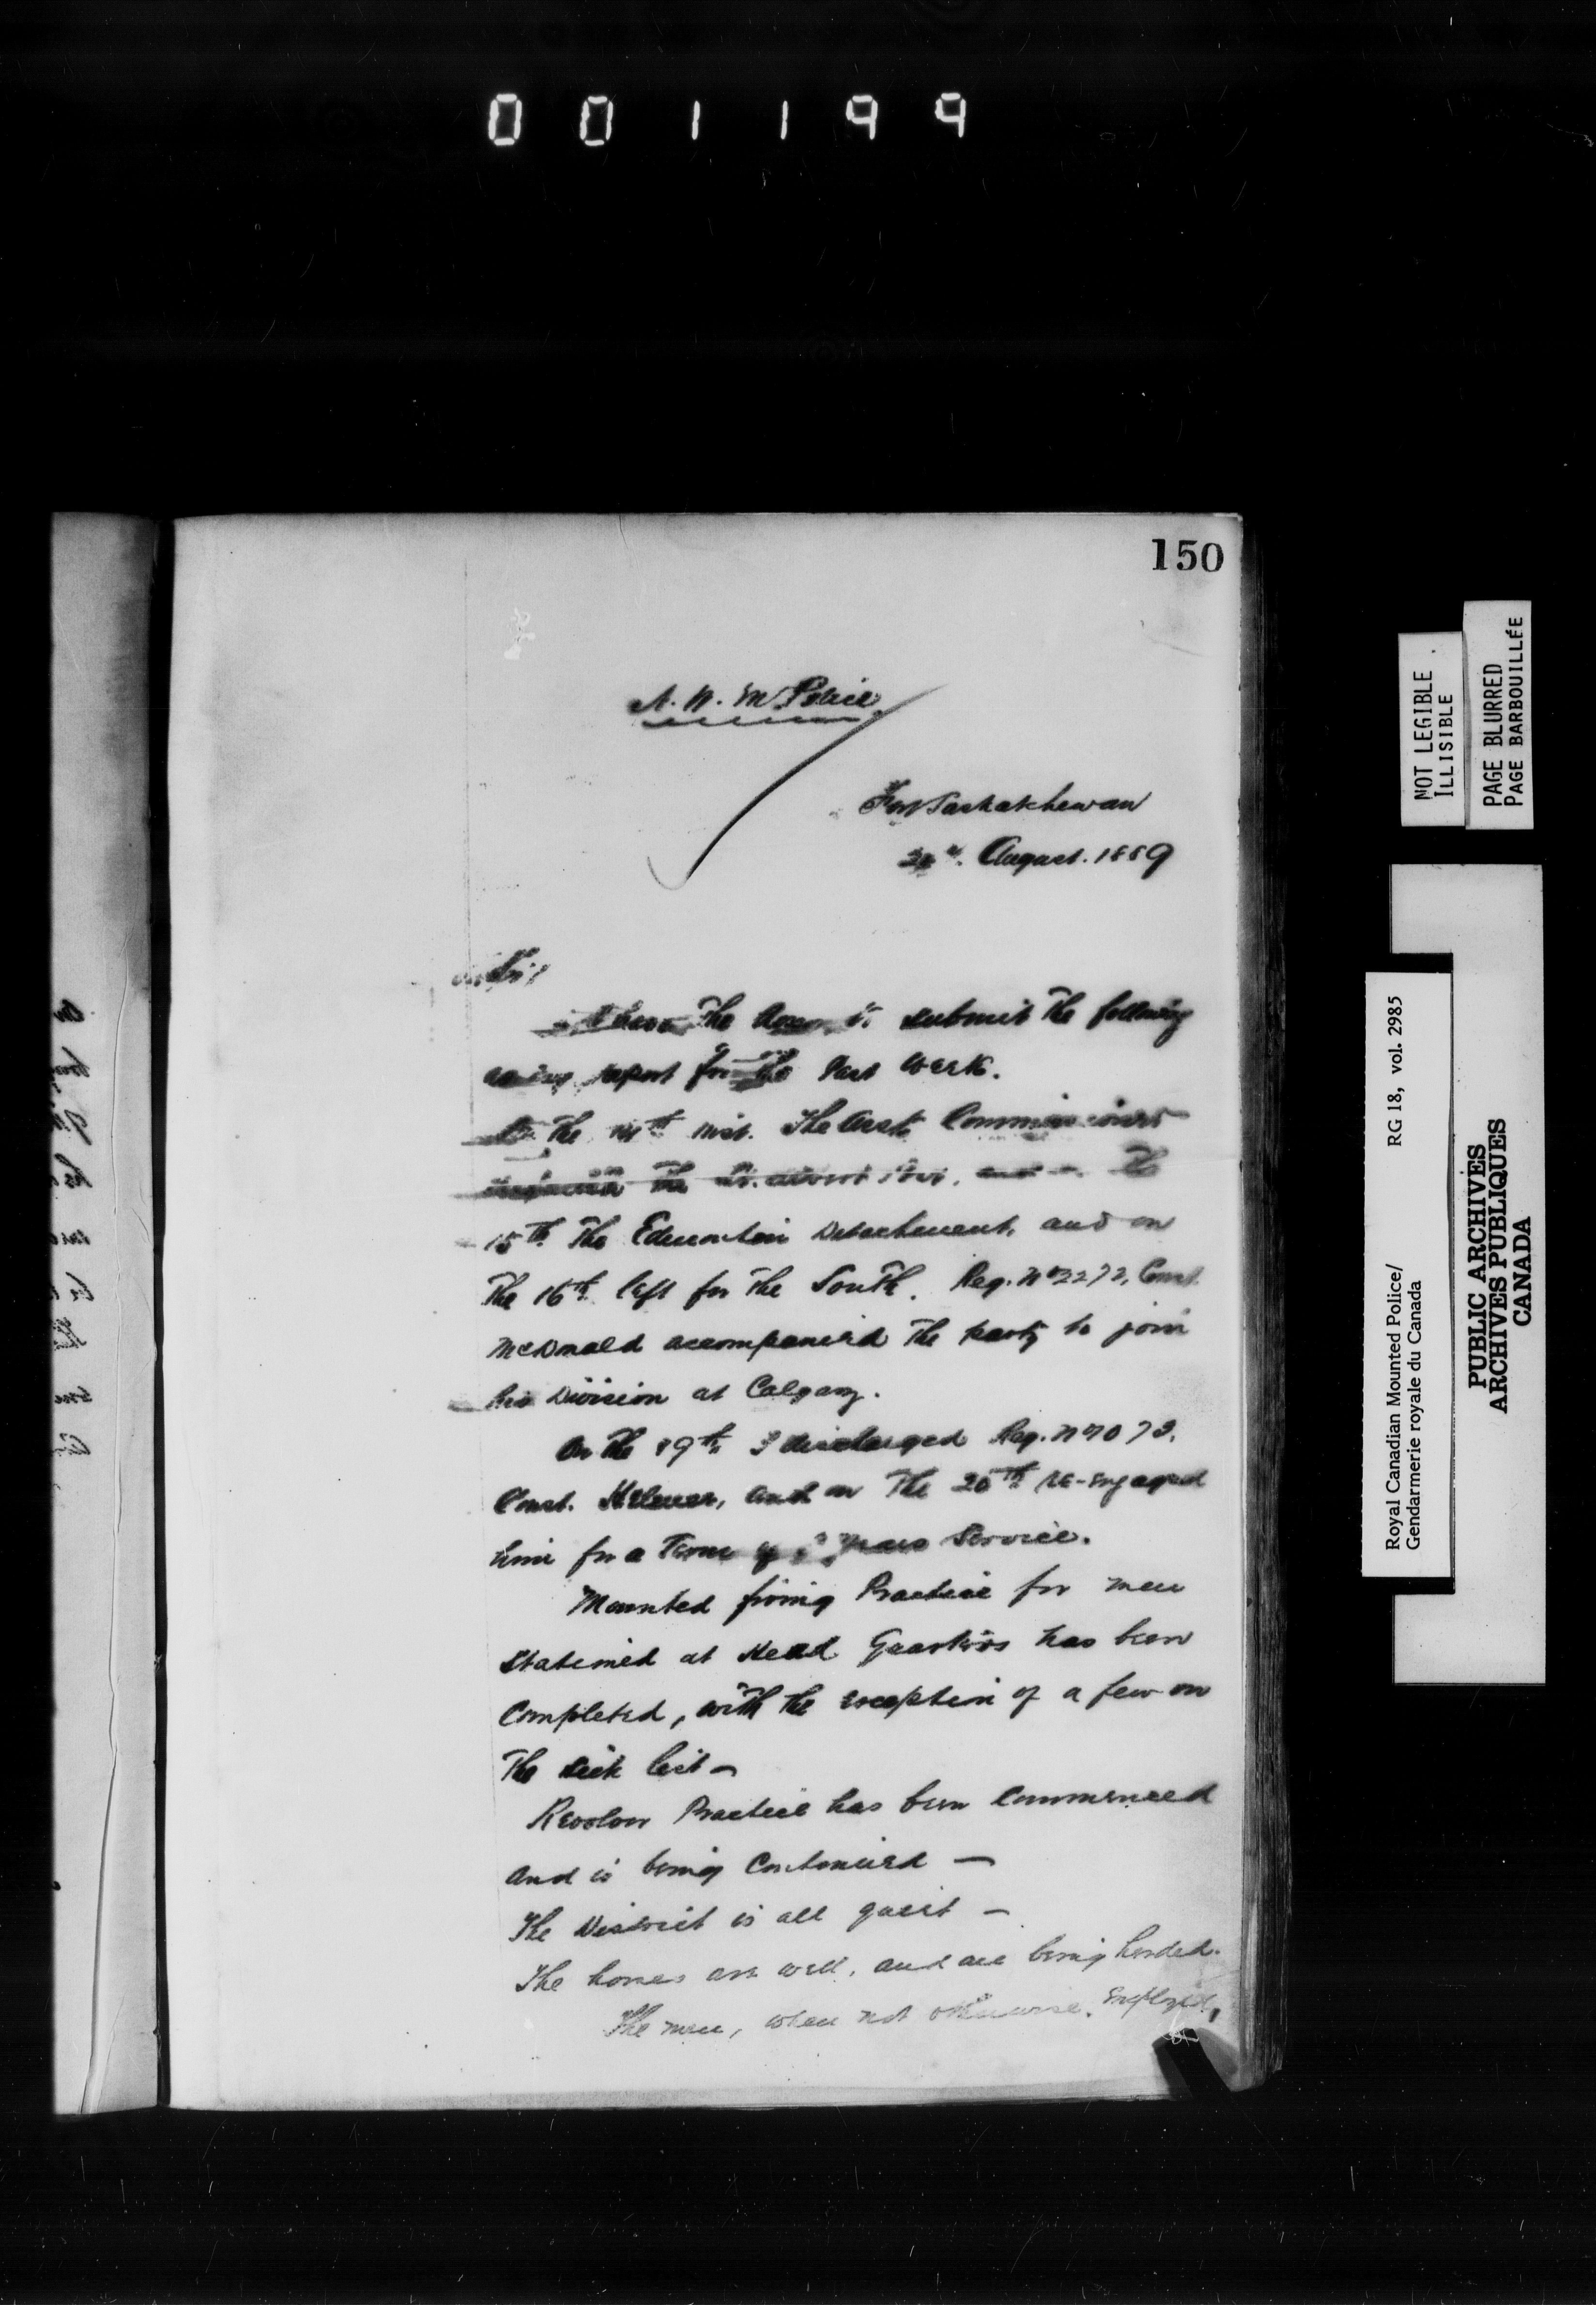 001199
150
N. W. M. Police
Fort Saskatchewan
August. 1889
Sir,
I have the honor to submit the following
report for the past week.
the 14th inst. The Asst. Commissioner
the
15th. The Edmonton Detachment, and on
The 16th left for the South. Reg. No 2272, Const.
McDonald accompanied the party to join
his Division at Calgary.
On the 19th I discharged Reg. No 1073.
Const. and on The 20th re-engaged
him for a Term of years Service.
Mounted firing Practice for men
stationed at Head Quarters has been
Completed, with the exception of a few on
The sick list —
Revolver Practice has been Commenced
and is being Continued —
The District is all quiet —
The horses are well, and are being herded.
The men, when not otherwise employed,
NOT LEGIBLE
ILLISIBLE
PAGE BLURRED
PAGE BARBOUILLÉE
Royal Canadian Mounted Police/ RG 18, vol. 2985
Gendarmerie royale du Canada
PUBLIC ARCHIVES
ARCHIVES PUBLIQUES
CANADA